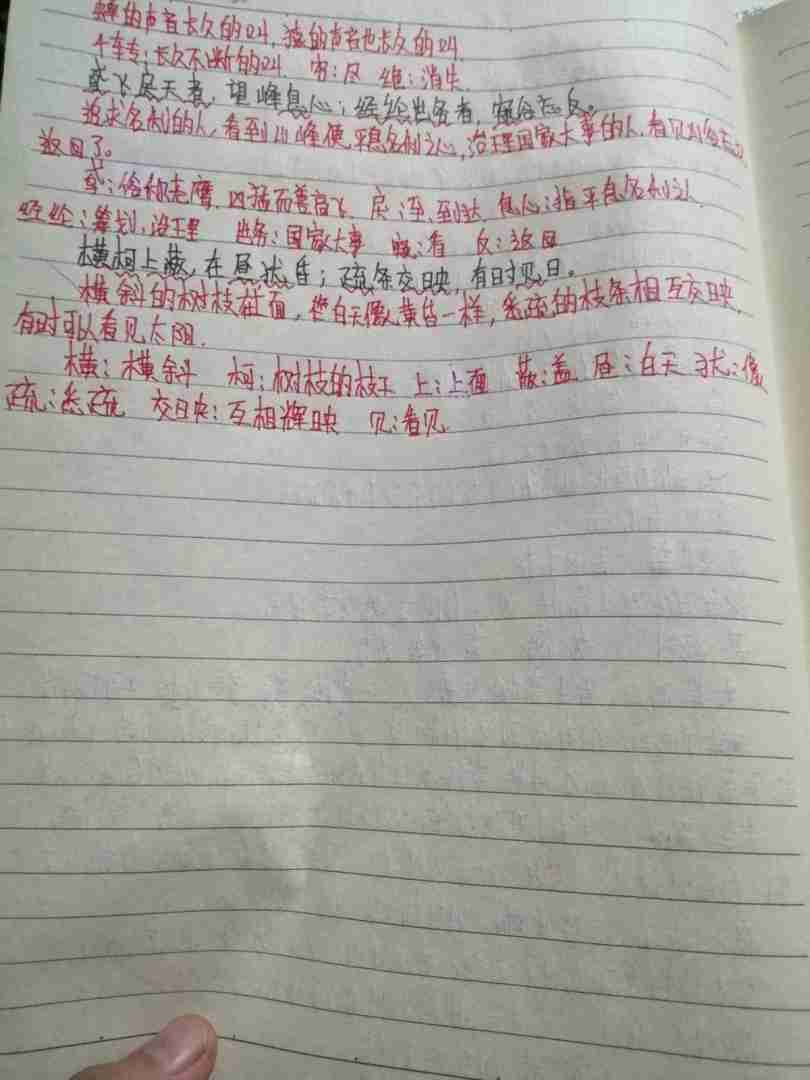 蝉的声音长久的叫,猿的声音也长久的叫.
千转:长久不断的叫. 穷:尽 绝:消失.
鸢飞戾天者,望峰息心;经纶世务者,窥谷忘反。
追求名利的人,看到山峰便平息名利之心,治理国家大事的人,看见
返回了。
鸢:俗称老鹰.凶猛而善高飞. 戾:至,到达. 息心:指平息名利之心.
经纶:筹划,治理 世务:国家大事 窥:看 反:返回
横柯上蔽,在昼犹昏;疏条交映,有时见日。
横斜的树枝在上面,白天像黄昏一样,稀疏的枝条相互交映,
有时可以看见太阳.
横:横斜 柯:树枝的枝干 上:上面 蔽:盖 昼:白天 犹:像
疏:稀疏 交映:互相辉映 见:看见